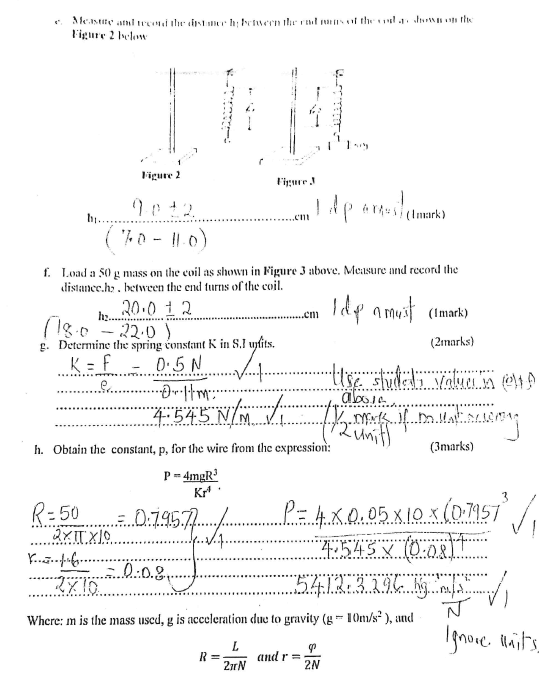 e. Measure and record the distance h₁ between the end turns of the coil as shown on the
Figure 2 below
Figure 2
Figure 3
h₁ 9.0 ± 2 cm 1 dp a must (1mark)
(7.0 – 11.0)
f. Load a 50 g mass on the coil as shown in Figure 3 above. Measure and record the
distance.h₂ , between the end turns of the coil.
h₂ 20.0 ± 2 cm 1dp a must (1mark)
(18.0 – 22.0)
g. Determine the spring constant K in S.I units. (2marks)
K = F/e = 0.5 N / 0.11m √1
Use students values in (e) & f
above
4.545 N/m √1 (½ mark if
unit)
h. Obtain the constant, p, for the wire from the expression: (3marks)
P = 4mgR³
Kr⁴
R = 50 / 2×π×10 = 0.7957 √1 P = 4 × 0.05 × 10 × (0.7957)³ √1
4.545 × (0.08)⁴
r = 1.6 / 2×10 = 0.08
5412.3296 √1
N
Ignore units
Where: m is the mass used, g is acceleration due to gravity (g = 10m/s² ), and
R = L/2πN and r = φ/2N